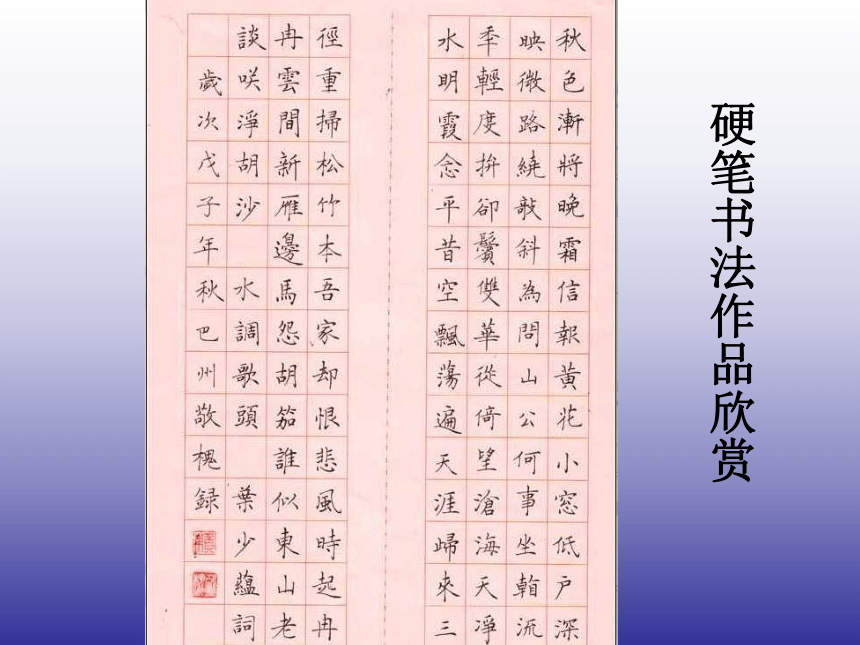 秋色漸將晚霜信報黃花小窓低戶深
映微路繞敧斜為問山公何事坐看流
秊輕度拚卻鬢雙華徙倚望滄海天淨
水明霞念平昔空飄蕩遍天涯歸來三
徑重掃松竹本吾家却恨悲風時起冉
冉雲間新雁邊馬怨胡笳誰似東山老
談咲淨胡沙 水調歌頭 葉少蘊詞
歲次戊子年秋巴州敬槐録
硬笔书法作品欣赏